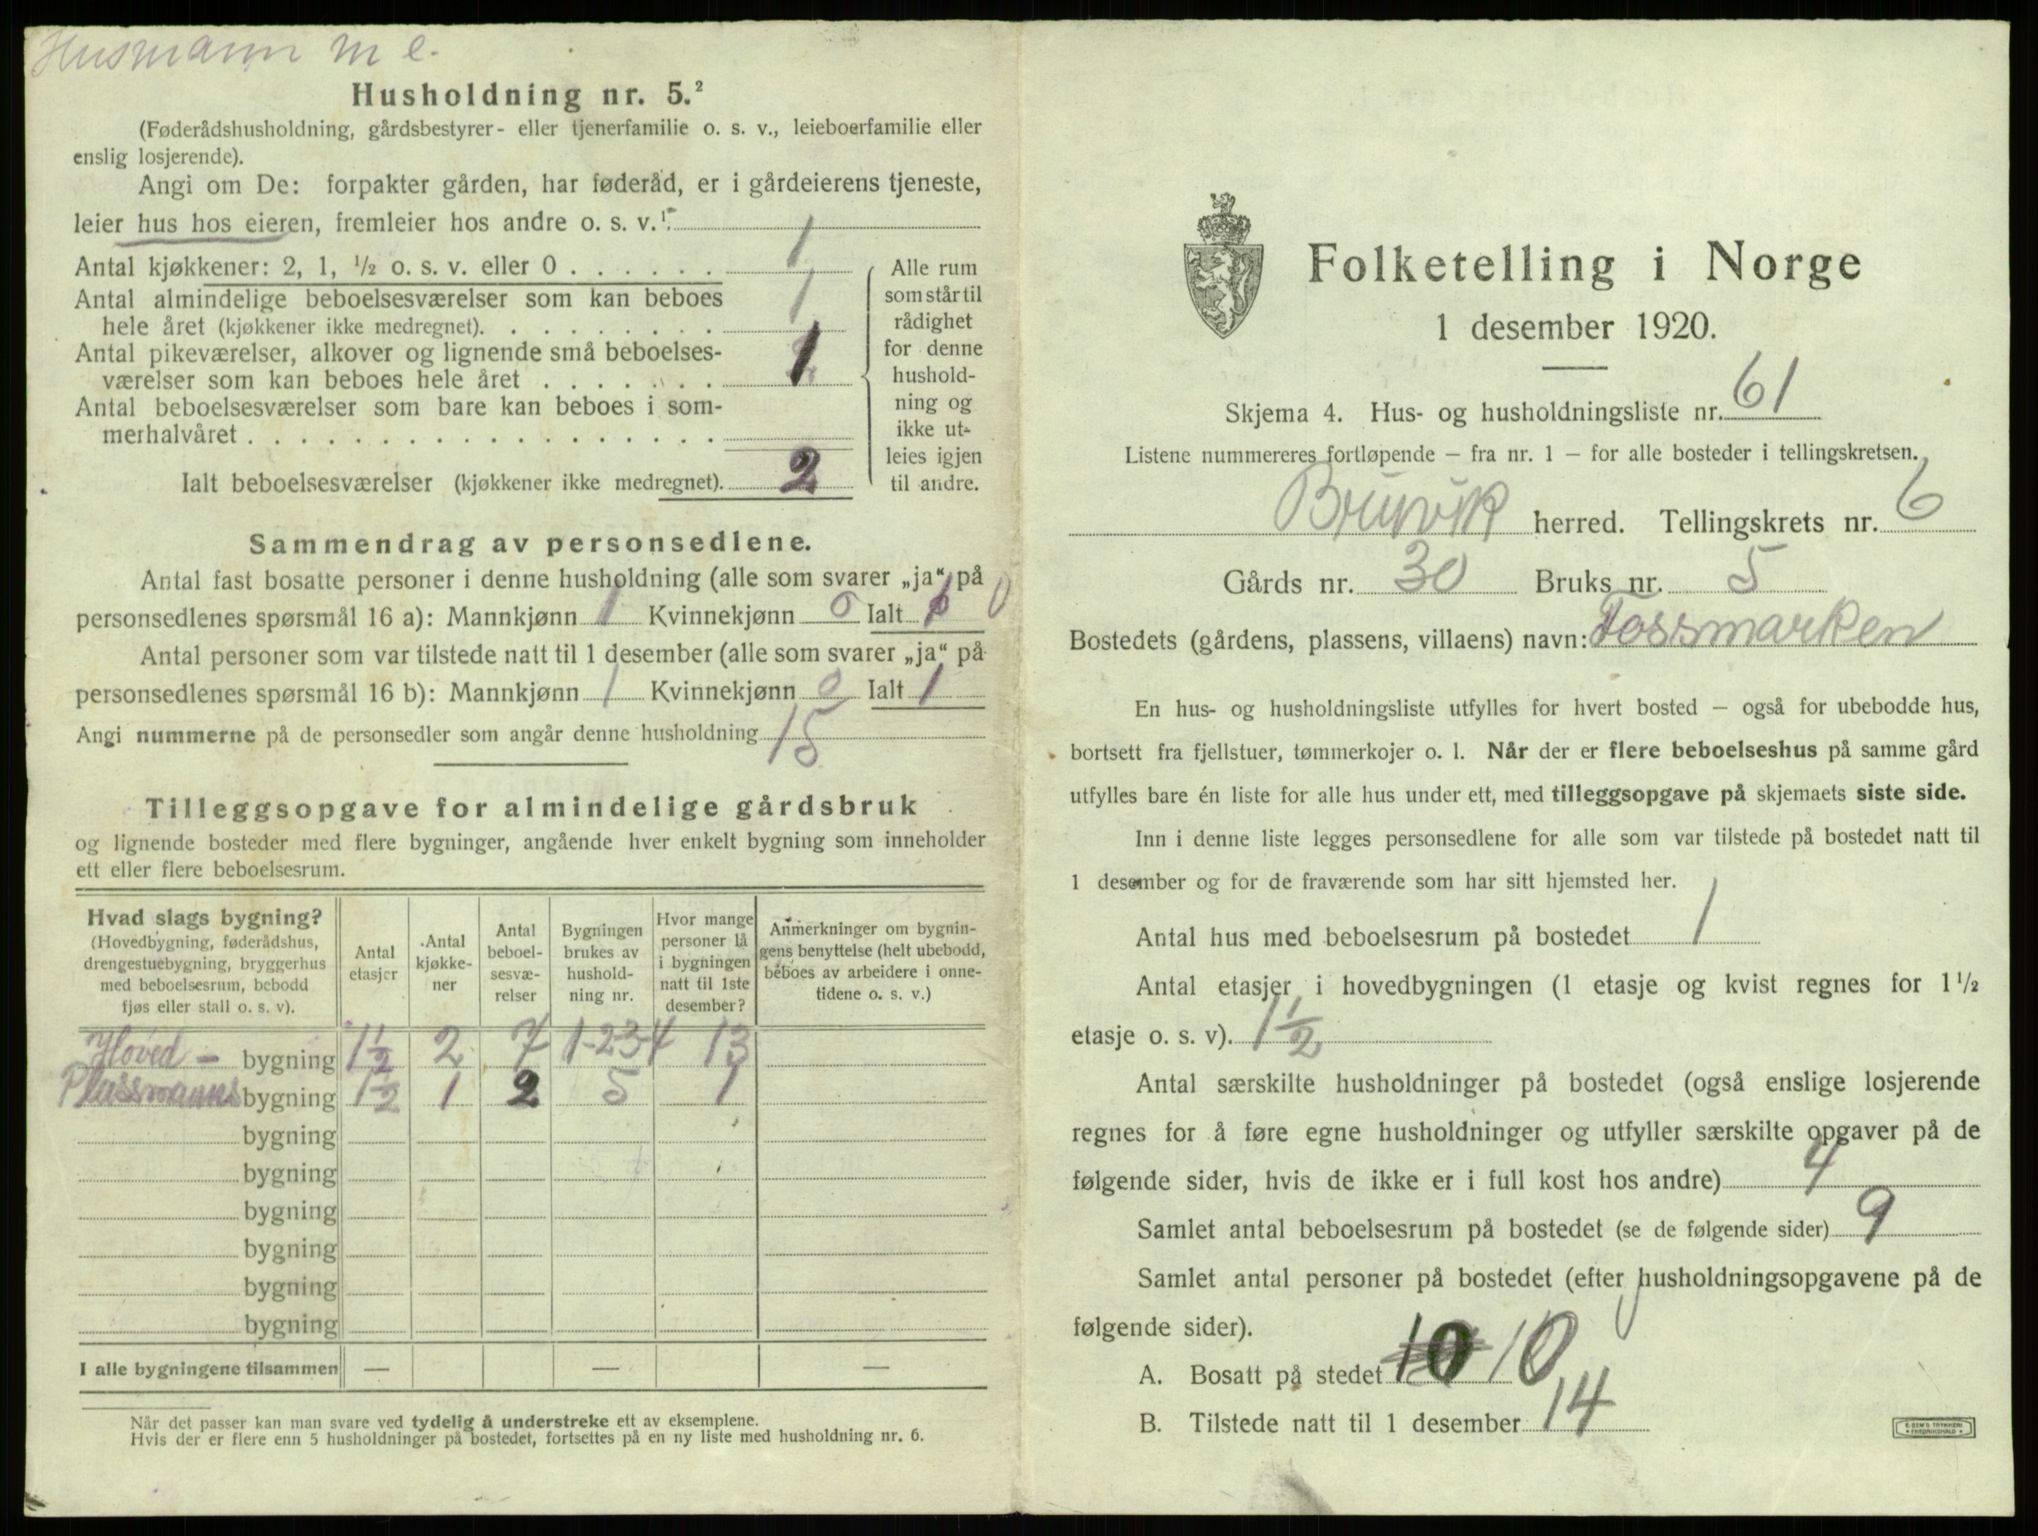 Husmann m e.
Husholdning nr. 5.²
(Føderådshusholdning, gårdsbestyrer- eller tjenerfamilie o. s. v., leieboerfamilie eller
enslig losjerende).
Angi om De: forpakter gården, har føderåd, er i gårdeierens tjeneste,
leier hus hos eieren, fremleier hos andre o. s. v.¹
Antal kjøkkener: 2, 1, ½ o. s. v. eller 0 . . . . . . 1
Antal almindelige beboelsesværelser som kan beboes
hele året (kjøkkener ikke medregnet). . . . . . . . . 1
Antal pikeværelser, alkover og lignende små beboelses-
værelser som kan beboes hele året . . . . . . . 1
Antal beboelsesværelser som bare kan beboes i som-
merhalvåret . . . . . . . . . . . . . . . . . .
Ialt beboelsesværelser (kjøkkener ikke medregnet). 2
Alle rum
som står til
rådighet
for denne
hushold-
ning og
ikke ut-
leies igjen
til andre.
Sammendrag av personsedlene.
Antal fast bosatte personer i denne husholdning (alle som svarer „ja“ på
personsedlenes spørsmål 16 a): Mannkjønn 1 Kvinnekjønn 0 Ialt 0
Antal personer som var tilstede natt til 1 desember (alle som svarer „ja“ på
personsedlenes spørsmål 16 b): Mannkjønn 1 Kvinnekjønn 0 Ialt 1
Angi nummerne på de personsedler som angår denne husholdning 15
Tilleggsopgave for almindelige gårdsbruk
og lignende bosteder med flere bygninger, angående hver enkelt bygning som inneholder
ett eller flere beboelsesrum.
Hvad slags bygning?
(Hovedbygning, føderådshus,
drengestuebygning, bryggerhus
med beboelsesrum, bebodd
fjøs eller stall o. s. v).
Antal
etasjer
Antal
kjøkke-
ner
Antal
beboel-
sesvæ-
relser
Bygningen
brukes av
hushold-
ning nr.
Hvor mange
personer lå
i bygningen
natt til 1ste
desember?
Anmerkninger om bygnin-
gens benyttelse (helt ubebodd,
beboes av arbeidere i onne-
tidene o. s. v.)
Hoved - bygning 1½ 2 7 1-2-3-4 13
Plassmanns bygning 1½ 1 2 5 1
bygning
bygning
bygning
bygning
bygning
bygning
I alle bygningene tilsammen — — —
Når det passer kan man svare ved tydelig å understreke ett av eksemplene.
Hvis der er flere enn 5 husholdninger på bostedet, fortsettes på en ny liste med husholdning nr. 6.
Folketelling i Norge
1 desember 1920.
Skjema 4. Hus- og husholdningsliste nr. 61
Listene nummereres fortløpende – fra nr. 1 – for alle bosteder i tellingskretsen.
Bruvik herred. Tellingskrets nr. 6
Gårds nr. 30 Bruks nr. 5
Bostedets (gårdens, plassens, villaens) navn: Fossmarken
En hus- og husholdningsliste utfylles for hvert bosted – også for ubebodde hus,
bortsett fra fjellstuer, tømmerkojer o. l. Når der er flere beboelseshus på samme gård
utfylles bare én liste for alle hus under ett, med tilleggsopgave på skjemaets siste side.
Inn i denne liste legges personsedlene for alle som var tilstede på bostedet natt til
1 desember og for de fraværende som har sitt hjemsted her.
Antal hus med beboelsesrum på bostedet 1
Antal etasjer i hovedbygningen (1 etasje og kvist regnes for 1½
etasje o. s. v). 1½
Antal særskilte husholdninger på bostedet (også enslige losjerende
regnes for å føre egne husholdninger og utfyller særskilte opgaver på de
følgende sider, hvis de ikke er i full kost hos andre) 4
Samlet antal beboelsesrum på bostedet (se de følgende sider) 9
Samlet antal personer på bostedet (efter husholdningsopgavene på de
følgende sider).
A. Bosatt på stedet 10 10
B. Tilstede natt til 1 desember 14
E. SEM'S TRYKKERI
FREDRIKSHALD